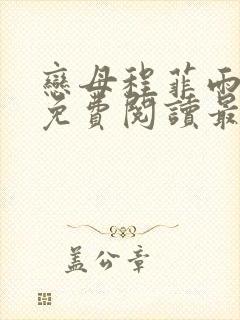 戀母程菲雨
免費閱讀最
蓋公章